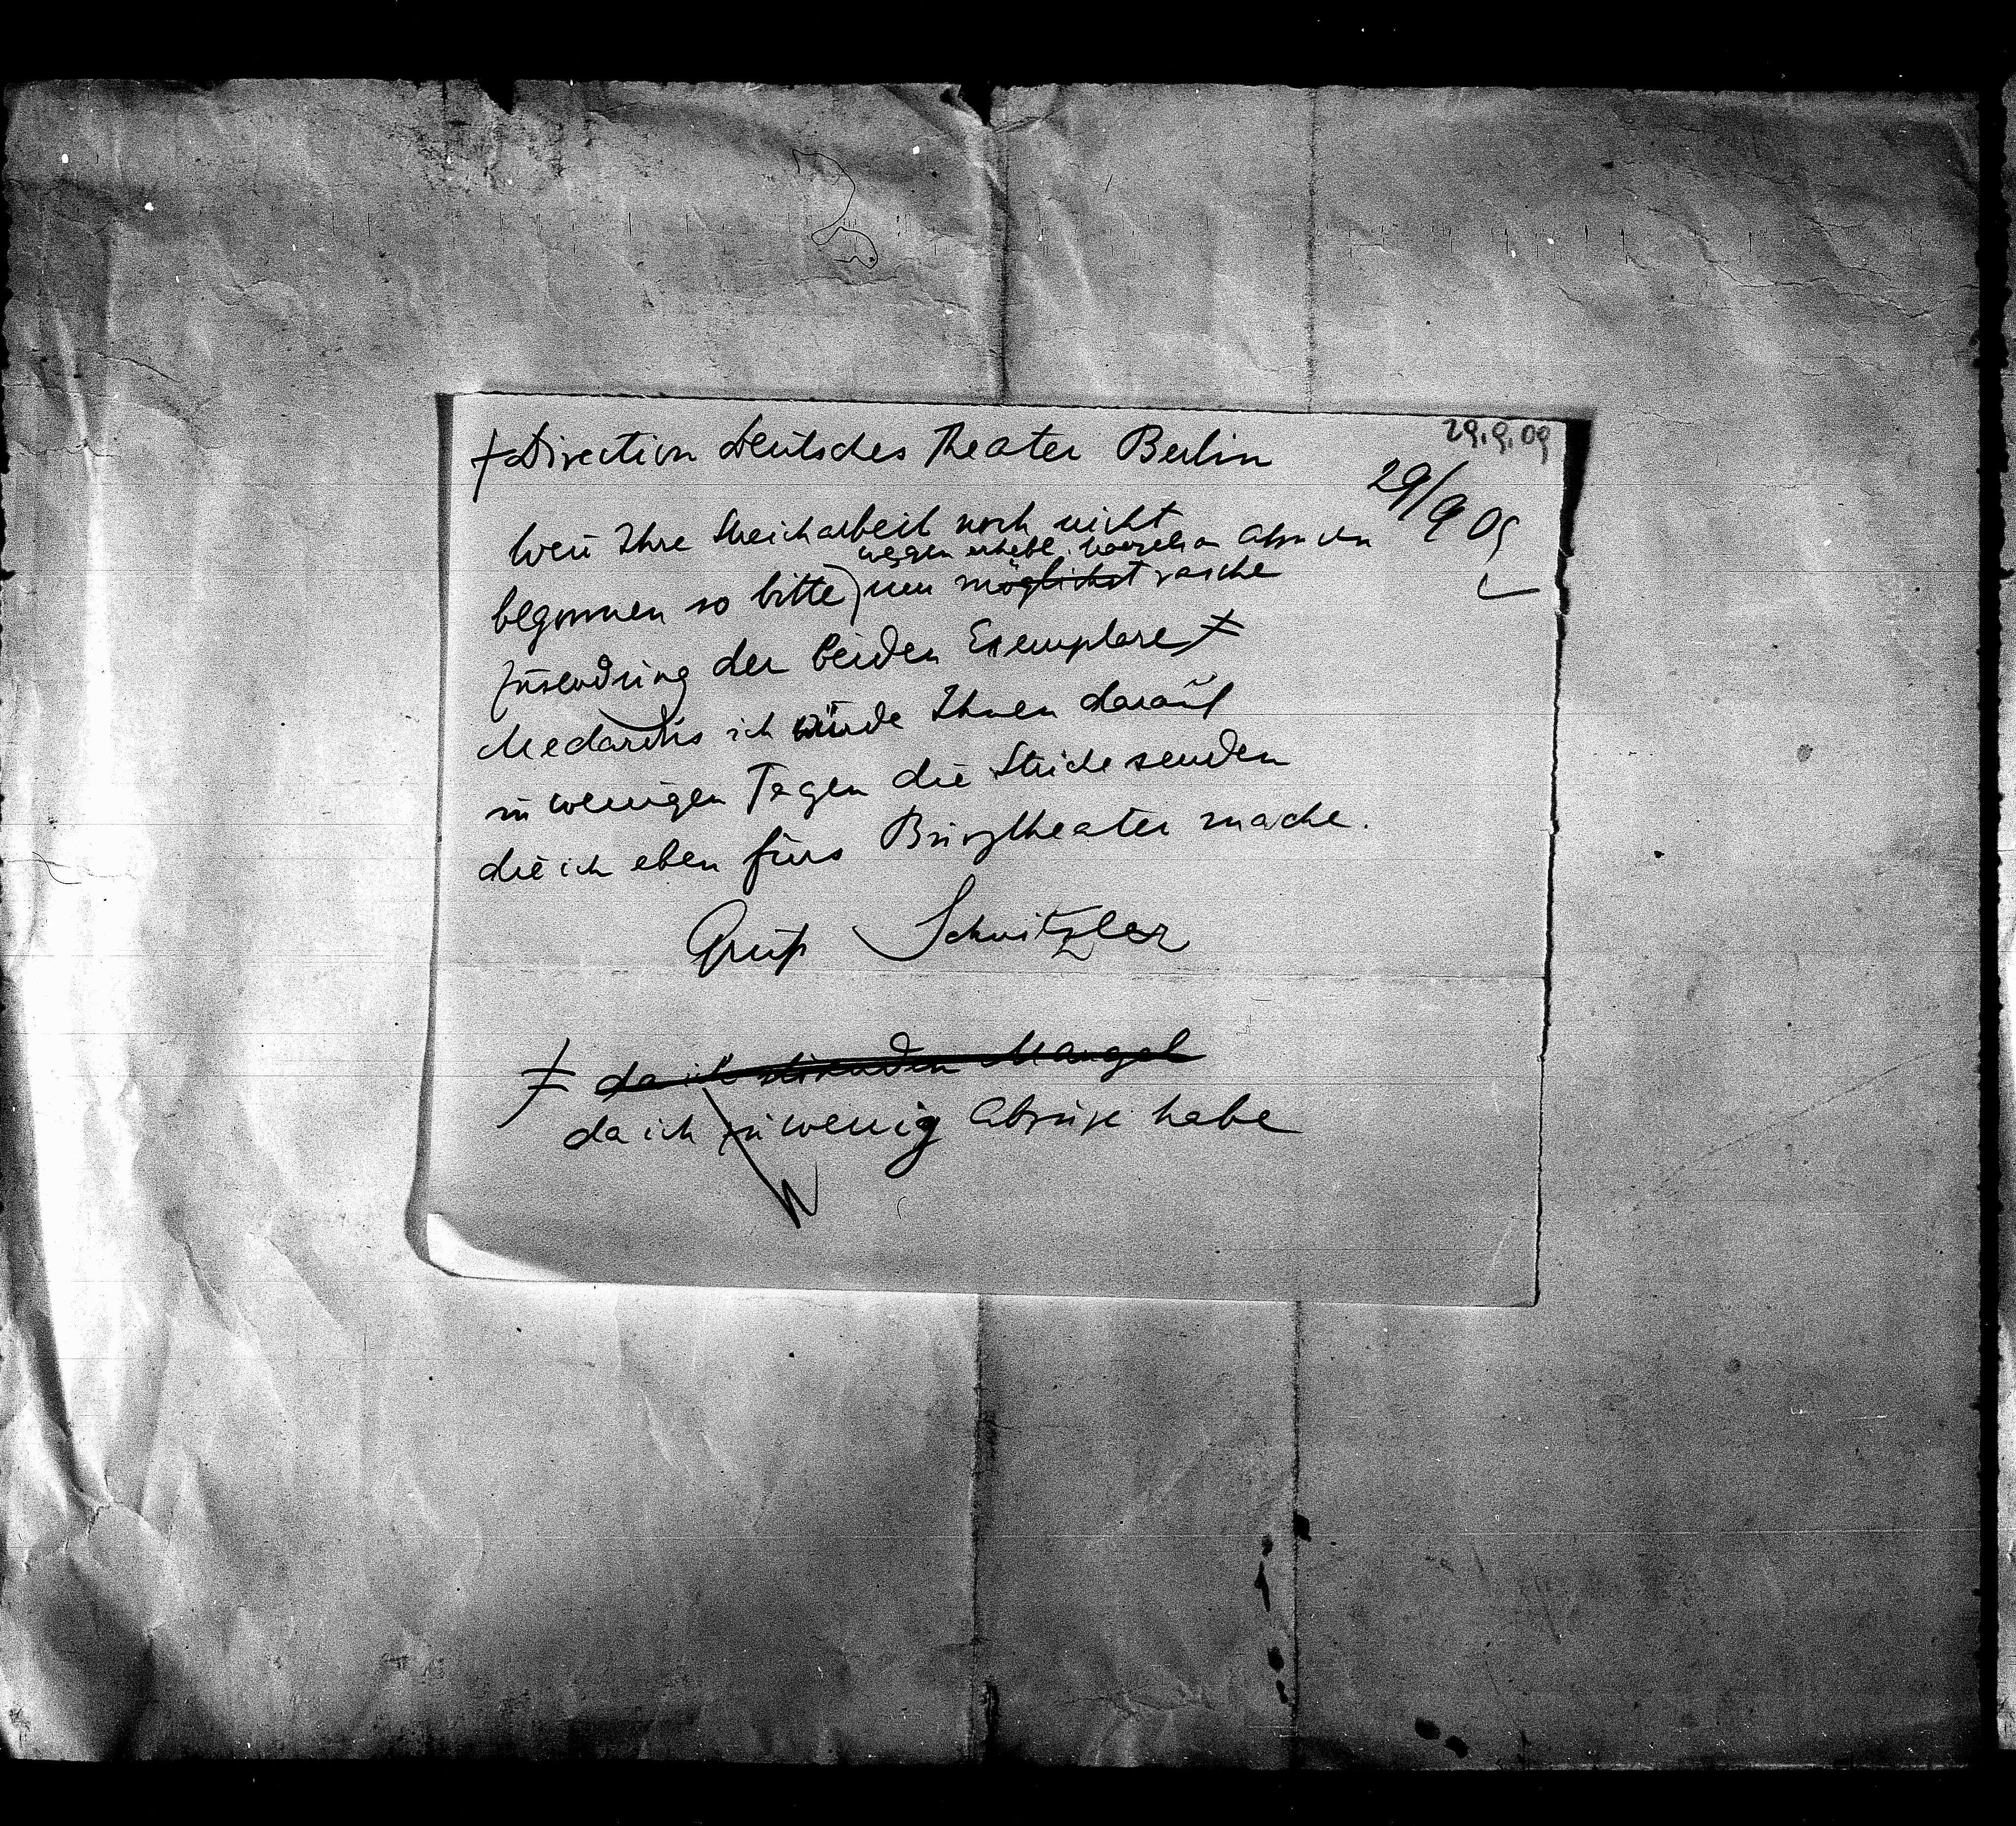 29.9.09
Direction Deutsches Theater Berlin
29/9 09
Wenn Ihre Streicharbeit noch nicht
wegen erhebl.
begonnen so bitte um möglichst rasche
Zusendung der beiden Exemplare ≠
Medardus ich würde Ihnen darauf
in wenigen Tagen die Striche senden
die ich eben fürs Burgtheater mache.
Gruß Schnitzler
≠ da ich Mangel
da ich zu wenig Abzüge habe